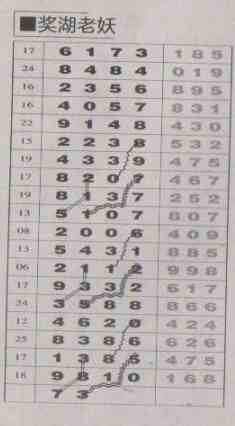 ■奖湖老妖
17 6 1 7 3 1 8 5
24 8 4 8 4 0 1 9
16 2 3 5 6 8 9 5
16 4 0 5 7 8 3 1
22 9 1 4 8 4 3 0
15 2 2 3 8 5 3 2
19 4 3 3 9 4 7 5
17 8 2 0 7 4 6 7
19 8 1 3 7 2 5 2
13 5 1 0 7 8 0 7
08 2 0 0 6 4 0 9
13 5 4 3 1 8 8 5
06 2 1 1 2 9 9 8
17 9 3 3 2 6 1 7
24 3 5 8 8 8 6 6
12 4 6 2 0 4 2 4
25 8 3 8 6 6 2 6
17 1 3 8 5 4 7 5
18 9 8 1 0 1 6 8
7 3